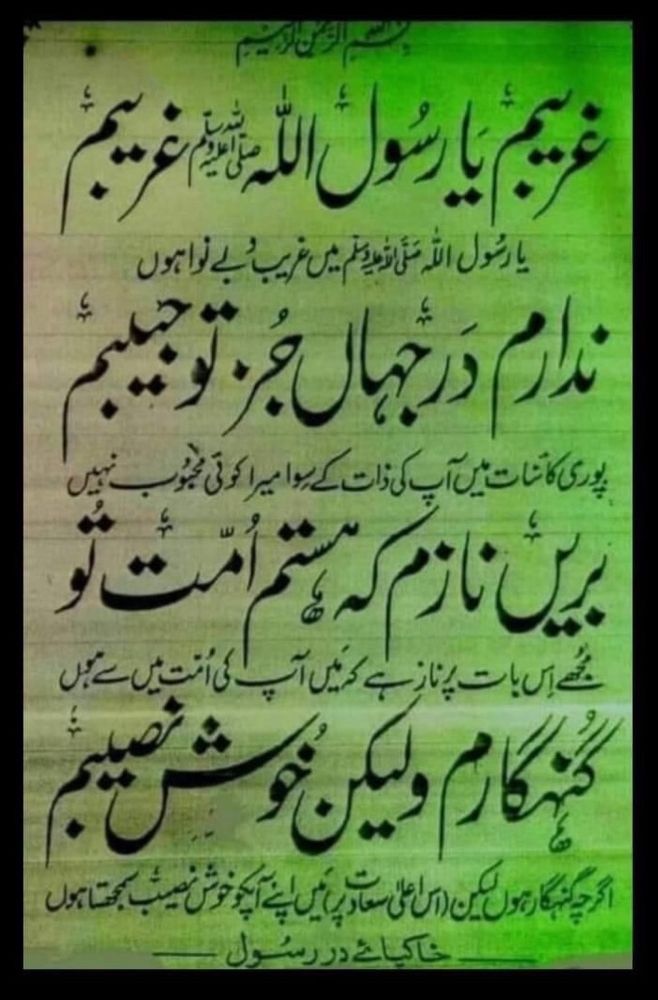 بِسْمِ اللهِ الرَّحْمٰنِ الرَّحِيْمِ
غریبم یَا رسُول اللّٰہ ﷺ غریبم
یا رسُول اللّٰہ ﷺ میں غریب و بے نوا ہوں
ندارم دَر جہاں جُز تو حبیبم
پوری کائنات میں آپ کی ذات کے سِوا میرا کوئی محبُوب نہیں
بریں نازم کہ ہستم اُمّت تُو
مُجھے اِس بات پر ناز ہے کہ مَیں آپ کی اُمّت میں سے ہوں
گُنہگارم ولیکن خُوش نصیبم
اگرچہ گنہگار ہوں لیکن (اس اعلیٰ سعادت پر) مَیں اپنے آپکو خوش نصیب سمجھتا ہوں
خاکپائے در رسُول